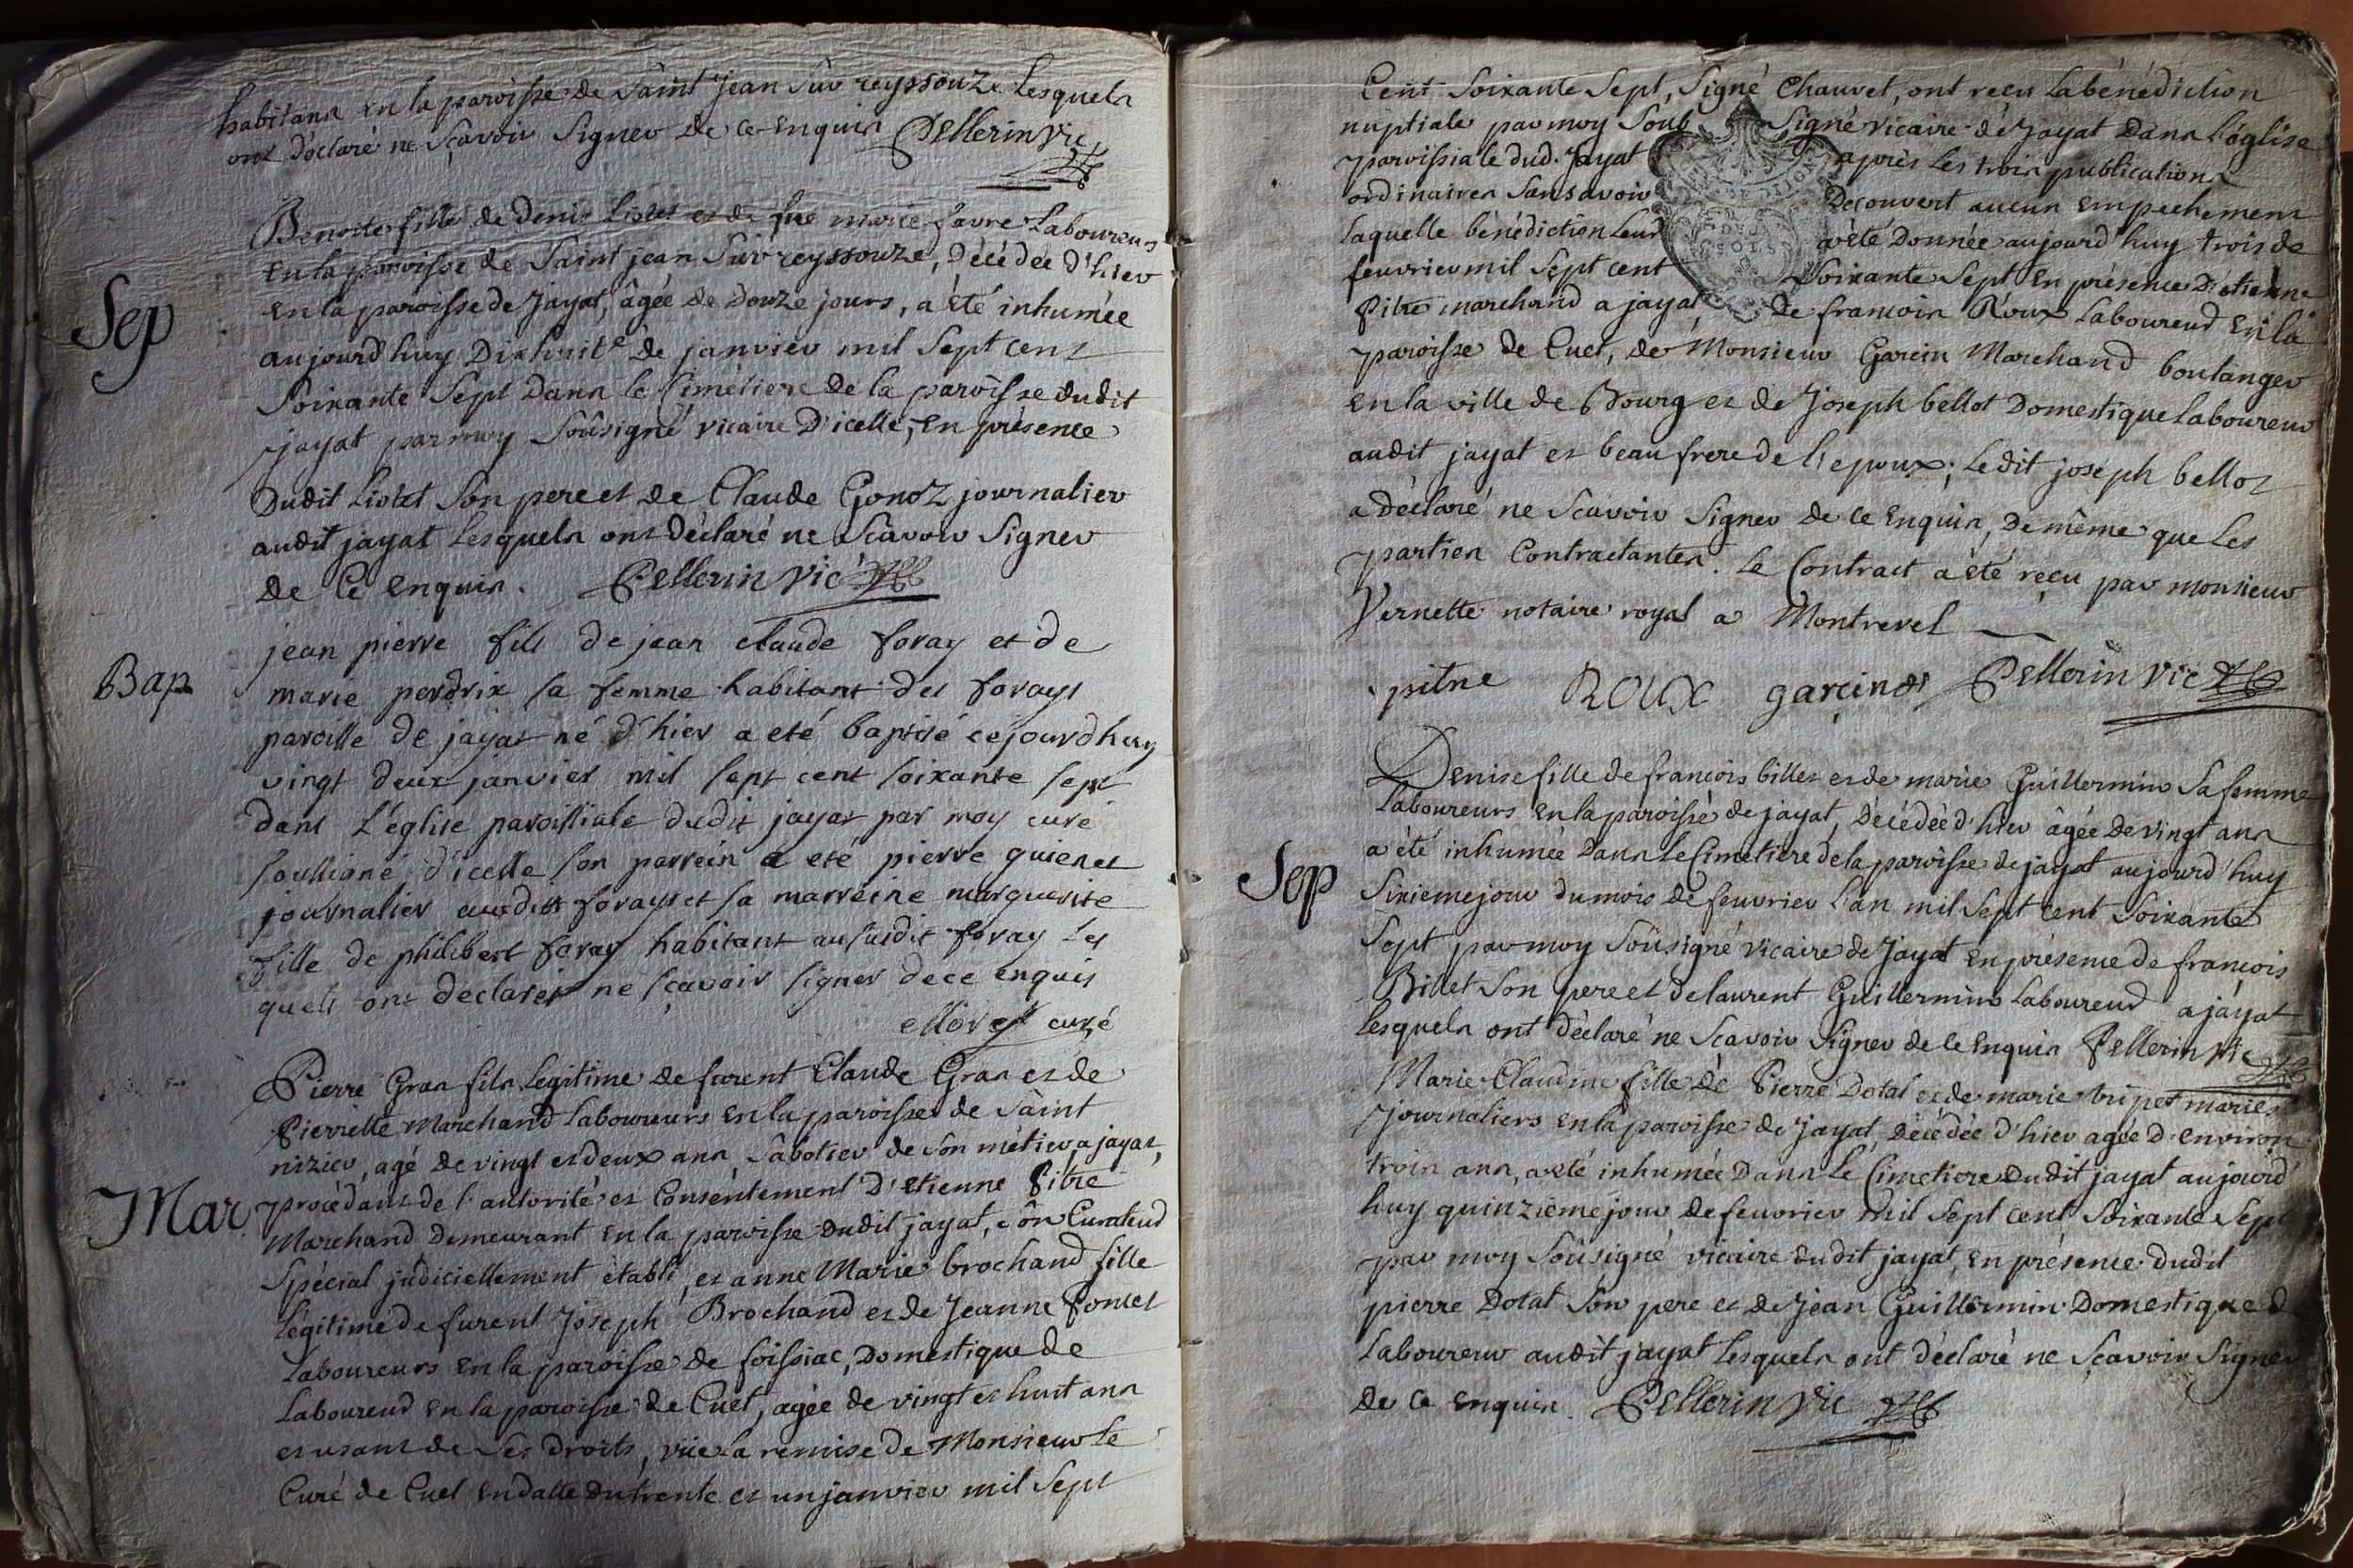 habitans en la paroisse de Saint Jean Sur reyssouze Lesquels
ont déclaré ne Sçavoir Signer de ce Enquis Pellerin Vic
Benoite fille de denis Liotet et de fue marie favre Laboureurs
en la paroisse de Saint jean Sur reyssouze, décédée d'hier
Sep
en la paroisse de Jayat, âgée de douze jours, a été inhumée
aujourd'huy Dixhuite de janvier mil Sept cent
Soixante Sept Dans le Cimetiere de la paroisse dudit
jayat par moy Soûsigné vicaire D'icelle, En présence
Dudit Liotet Son pere et de Claude Gonoz journalier
audit jayat Lesquels ont Déclaré ne Scavoir Signer
de Ce enquis. Pellerin Vic
jean pierre fils de jean claude foray et de
Bap
marie perdrix sa femme habitant des forays
paroisse de jayat né d'hier a eté baptisé cejourd'huy
vingt deux janvier mil sept cent soixante sept
dans l'église paroissiale dudit jayat par moy curé
soussigné d'icelle son parrein a eté pierre guienet
journalier auxdits forays et sa marreine marguerite
fille de philibert foray habitant au susdit foray les
quels ont declarés ne sçavoir signer de ce enquis
curé
Pierre Gras fils Legitime de furent Claude Gras et de
Pierrette Marchand Laboureurs en la paroisse de Saint
nizier, agé de vingt et deux ans, Sabotier de Son métier a jayat,
Mar
procédant de l'autorité et Consentement D'Etienne Pitre
Marchand Demeurant en la paroisse dudit jayat, Son Curateur
Spécial judiciellement établi, et anne Marie brochand fille
Légitime de furent Joseph Brochand et de Jeanne Poncet
Laboureurs en la paroisse de foissiac, Domestique de
Laboureur en la paroisse de Cuet, agée de vingt et huit ans
et usant de Ses droits, vüe La remise de Monsieur Le
Curé de Cuet en datte du trente et un janvier mil Sept
Cent Soixante Sept, Signé Chauvet, ont reçu La bénédiction
nuptiale par moy Sous Signé vicaire de Jayat Dans L'église
paroissiale dud. Jayat après Les trois publications
ordinaires Sans avoir Découvert aucun Empechement
Laquelle bénédiction Leur a été Donnée aujourd'huy trois de
feuvrier mil Sept cent Soixante Sept En présence D'étienne
Pitre marchand a jayat, de francois Roux Laboureur En la
paroisse de Cuet, de Monsieur Garcin Marchand boulanger
en la ville de Bourg et de Joseph bellot Domestique Laboureur
audit jayat et beau frere de l'epoux; Ledit joseph bellot
a déclaré ne Scavoir Signer de ce Enquis, de même que Les
parties Contractantes. Le Contract a été reçu par monsieur
Vernette notaire royal a Montrevel
pitre ROUX garcin Pellerin Vic
Denise fille de francois billet et de marie Guillermin Sa femme
Laboureurs en la paroisse de jayat, Décédée d'hier âgée de vingt ans
a été inhumée Dans Le Cimetiere de la paroisse de jayat aujourd'huy
Sep
Sixieme jour du mois de feuvrier L'an mil Sept cent Soixante
Sept par moy Soûsigné vicaire de Jayat en présence de francois
Billet Son pere et de laurent Guillermin Laboureur a jayat
Lesquels ont déclaré ne Scavoir Signer de ce enquis Pellerin Vic
Marie Claudine fille de Pierre Dotal et de marie tripet mariés
journaliers en la paroisse de jayat, décédée d'hier agée d'environ
trois ans, a été inhumée Dans Le Cimetiere dudit jayat aujourd'
huy quinzieme jour de feuvrier mil Sept cent Soixante Sept
par moy Soûsigné vicaire dudit jayat, en présence dudit
pierre Dotal Son pere et de Jean Guillermin Domestique de
Laboureur audit jayat Lesquels ont déclaré ne Sçavoir Signer
de ce enquis. Pellerin Vic